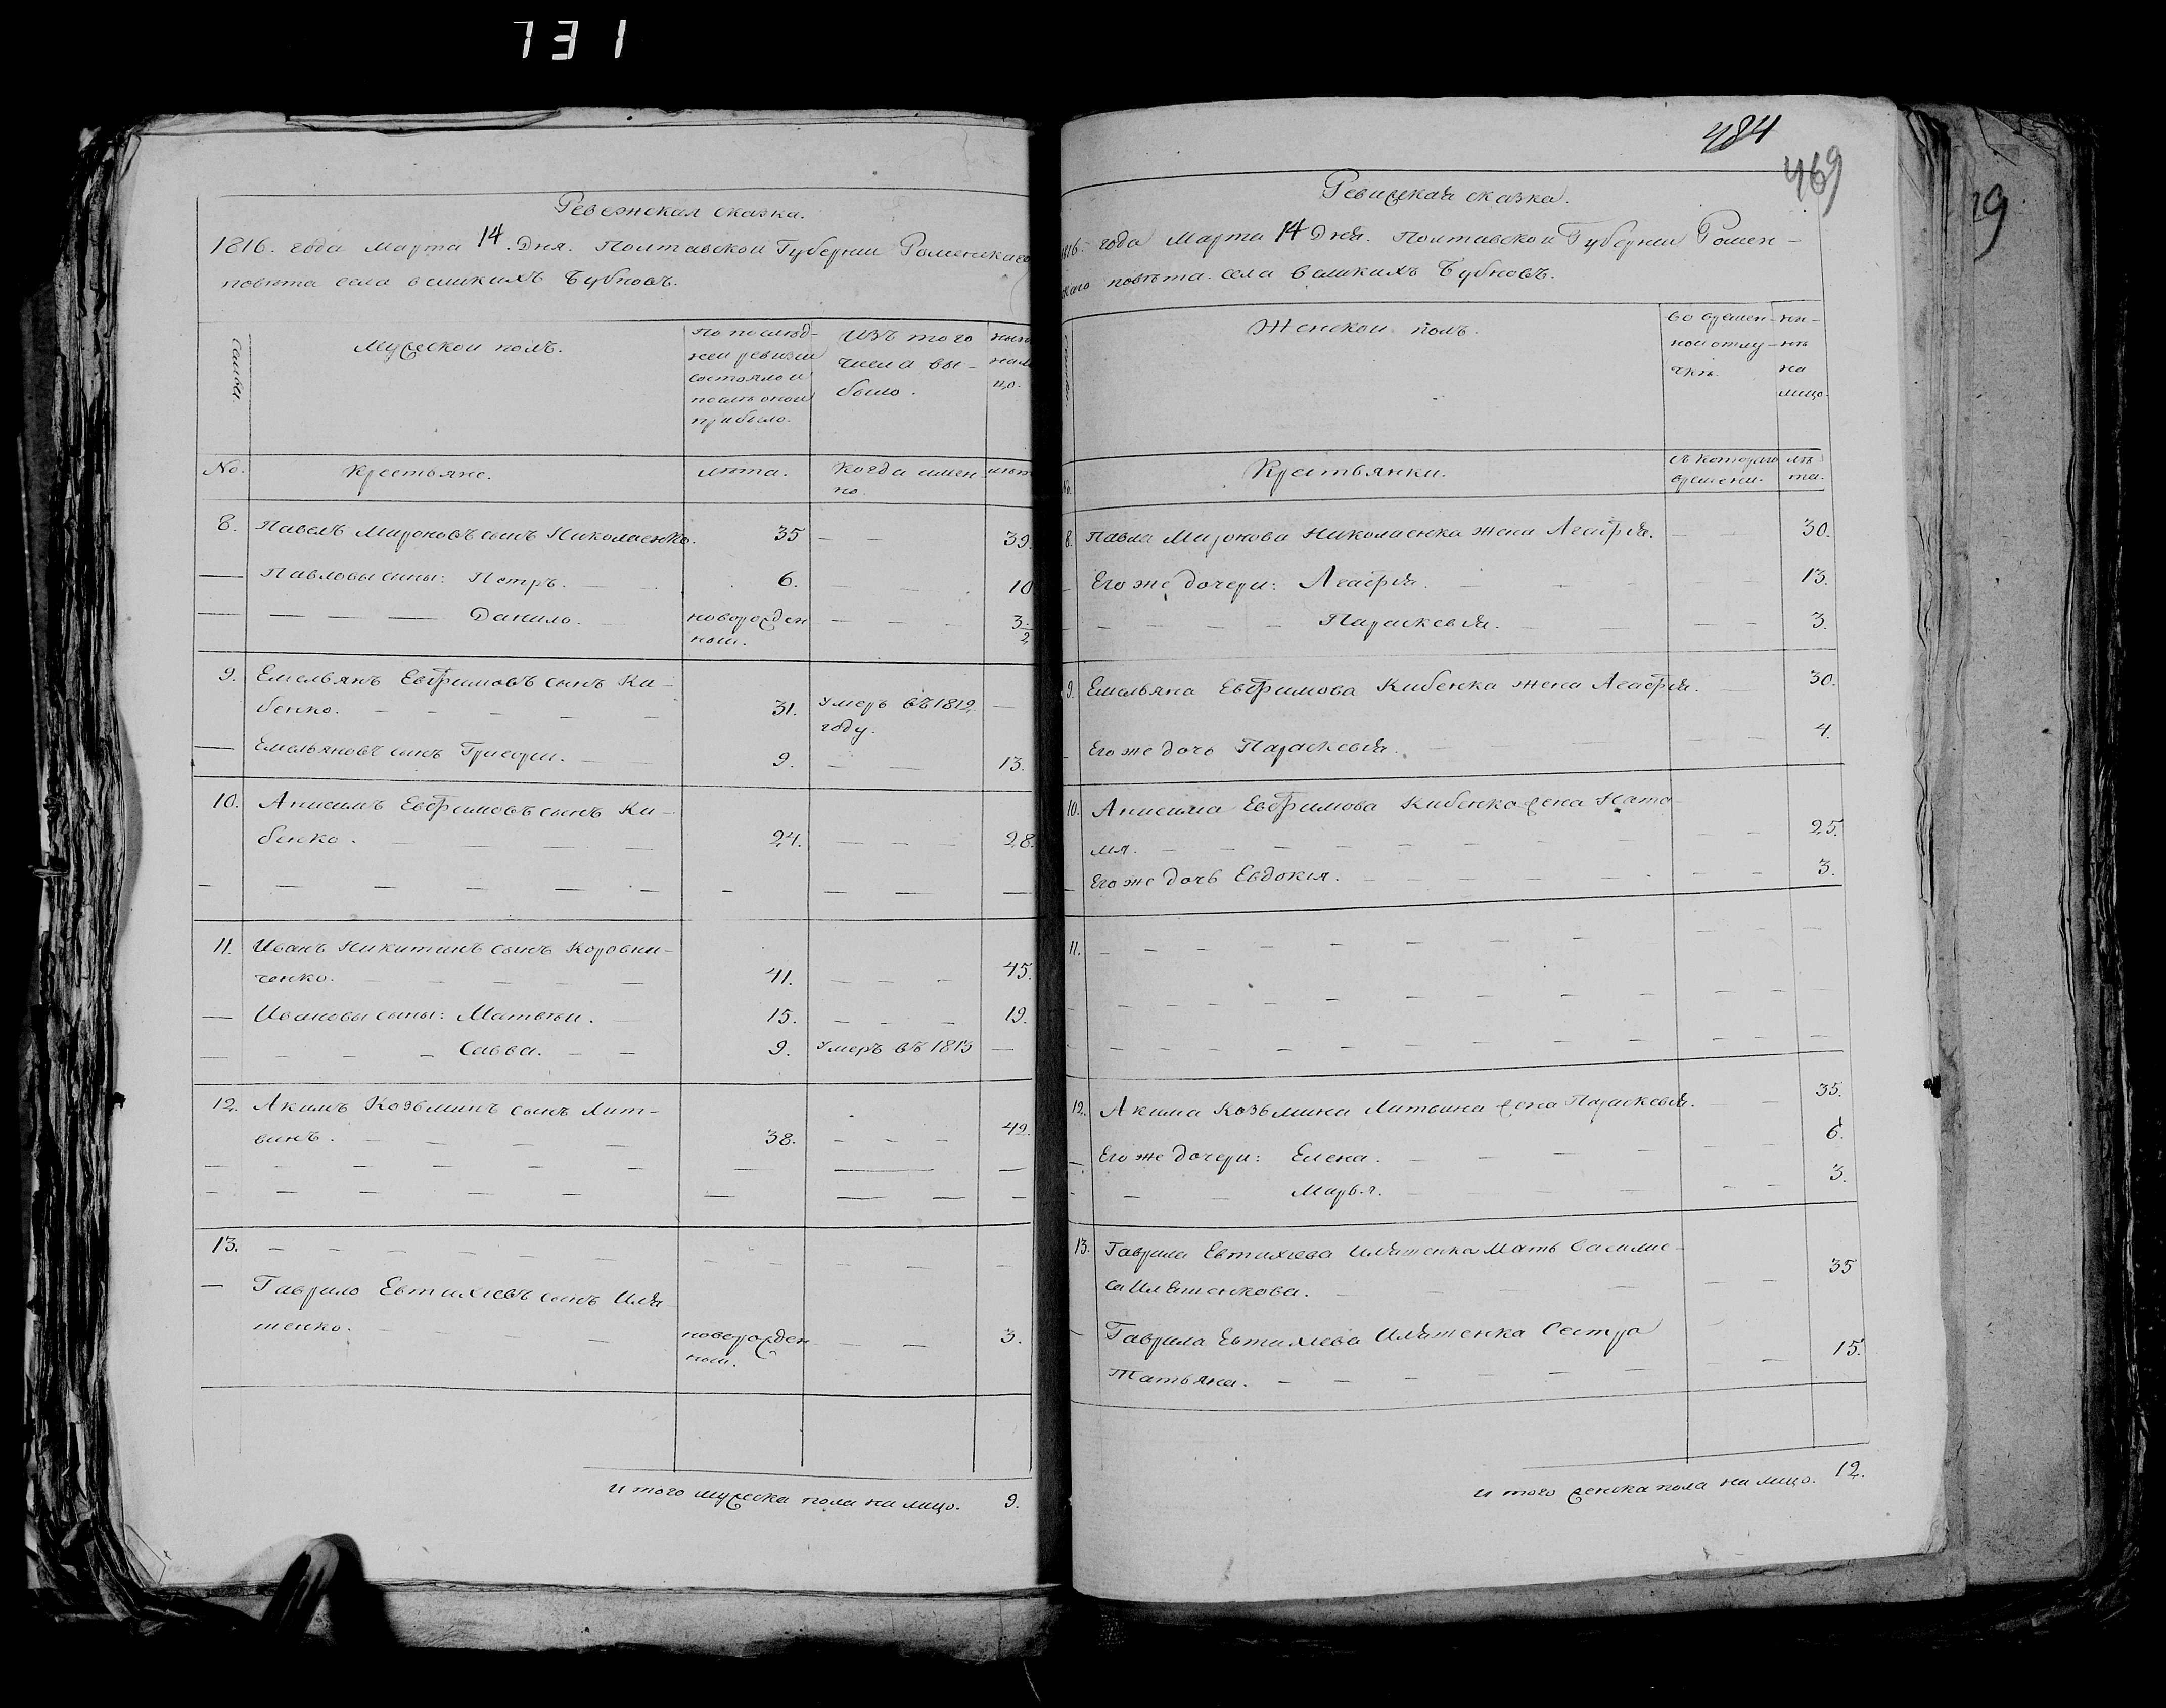 731
Ревежская сказка.
1816. года Марта 14. Дня. Полтавской Губернии Роменскаго
повѣта села великихъ Бубновъ.
Семьи.
Мужеской полъ.
По послѣд-
ней ревизии
состояло и
послѣ оной
прибыло.
Изъ того
числа вы-
было.
нынѣ
нали
цо.
No.
Крестьяне.
лѣта.
Когда имен-
но.
лѣт
8. Павелъ Мироновъ сынъ Николаенко. 35 — — 39.
— Павловы сыны: Петръ. — 6. — — 10
— — — Данило. новорожден — — — 3.
ной. 2
9. Емельянъ Евфимовъ сынъ Ки-
бенко. — — — — — 31. Умеръ въ 1812 —
году.
— Емельяновъ сынъ Григори. — — 9. — — 13.
10. Анисимъ Евфимовъ сынъ Ки-
бенко. — — — — 24. — — — 28.
— — — — — — — — — —
11. Иванъ Никитинъ сынъ Коровни-
ченко. — — — — — 41. — — — 45.
— Ивановы сыны: Матвѣи. — 15. — — — 19.
— — — — Савва. — — 9. Умеръ въ 1813 —
12. Акимъ Козьминъ сынъ Лит-
винъ. — — — — 38. — — — 42.
— — — — — — — — —
— — — — — — — — —
13. — — — — — — — — — —
— Гаврило Евтихіевъ сынъ Иля-
шенко. — — — — новорожден — — 3.
ной.
И того мужеска пола на лицо. 9.
484
469
Ревижская сказка.
1816. года Марта 14 Дня. Полтавской Губернии Ромен-
скаго повѣта. села великихъ Бубновъ.
Женской полъ.
Во времен-
ной отлу-
чкѣ.
ны-
нѣ
на
лицо.
Крестьянки.
съ котораго
времени.
лѣ
та.
8. Павла Миронова Николаенка жена Агафія. — — 30.
— Его же дочери: Агафія. — — — 13.
— — — — — Параскевія. — — — — 3.
9. Емельяна Евфимова Кибенка жена Агафія. — 30.
— Его же дочь Параскевія. — — — — — 4.
10. Анисима Евфимова Кибенка жена Ната
лія. — — — — — — — — — 25.
— Его же дочь Евдокія. — — — — — — — 3.
11. — — — — — — — — — —
— — — — — — — — — — —
— — — — — — — — — — —
12. Акима Козьмина Литвина жена Параскевія. — — 35.
— Его же дочери: Елена. — — — — — — 6.
— — — Марья. — — — — — 3.
13. Гаврила Евтихіева Иляшенка Мать Василис-
са Иляшенкова. — — — — — 35
— Гаврила Евтихіева Иляшенка Сестра
Татьяна. — — — — — — — 15.
И того женска пола на лицо. 12.
19